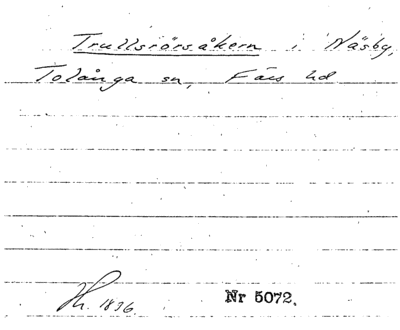 Trullsrörsåkern i Näsby,
Tolånga sn, Färs hd
1896.
Nr 5072.